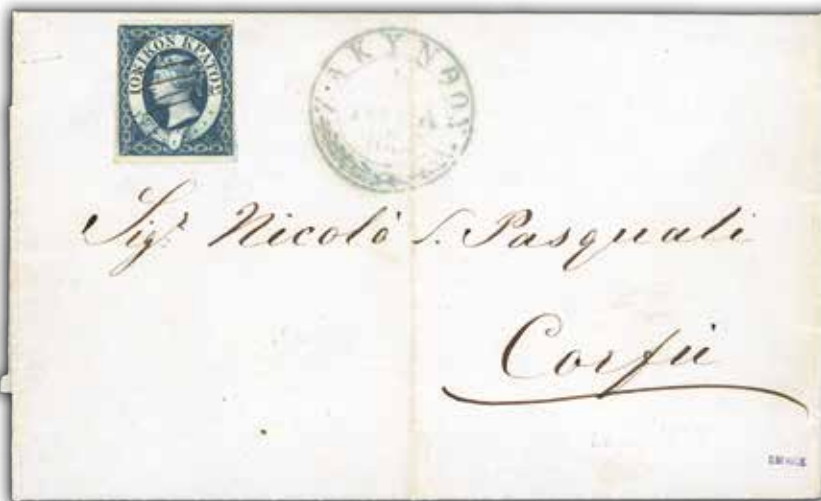 ΙΟΝΙΚΟΝ ΚΡΑΤΟΣ
ΖΑΚΥΝΘΟΥ
Sigr. Nicolò S. Pasquali
Corfù